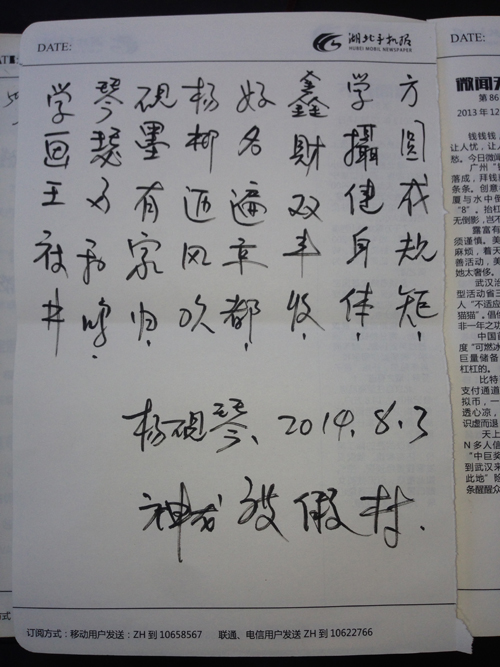 DATE:
湖北手机报
HUBEI MOBIL NEWSPAPER
方圓成规矩.
学攝健身体.
鑫财双丰收.
好名遍京都.
杨柳迎风吹.
砚墨有家归.
琴瑟 和鸣.
学画王 井
杨砚琴、2014.8.3
神龙度假村.
订阅方式：移动用户发送：ZH 到 10658567 联通、电信用户发送：ZH 到 10622766
DATE:
微闻天
第 86
2013 年 12
钱钱钱，
让人忧，让人
愁。今日微闻
广州“钱
落成，拜钱
条条。创意
厦与水中倒
“8”。抬杠
无倒影，岂不
露富有
须谨慎。美
麻烦，着天
善活动，美
她太奢侈。
武汉治
型活动省三
人“不适应
猫猫”。倡
非一年之功
中国首
度“可燃冰
巨量储备
杠杠的。
比特
支付通道
拟币，一
透心凉，
识虚而退
天上
N 多人信
“中巨奖
到武汉来
此地”险
条醒醒众